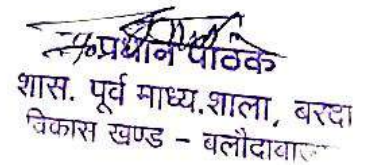 प्रधान पाठक
शास. पूर्व माध्य.शाला, बरदा
विकास खण्ड - बलौदाबाजार